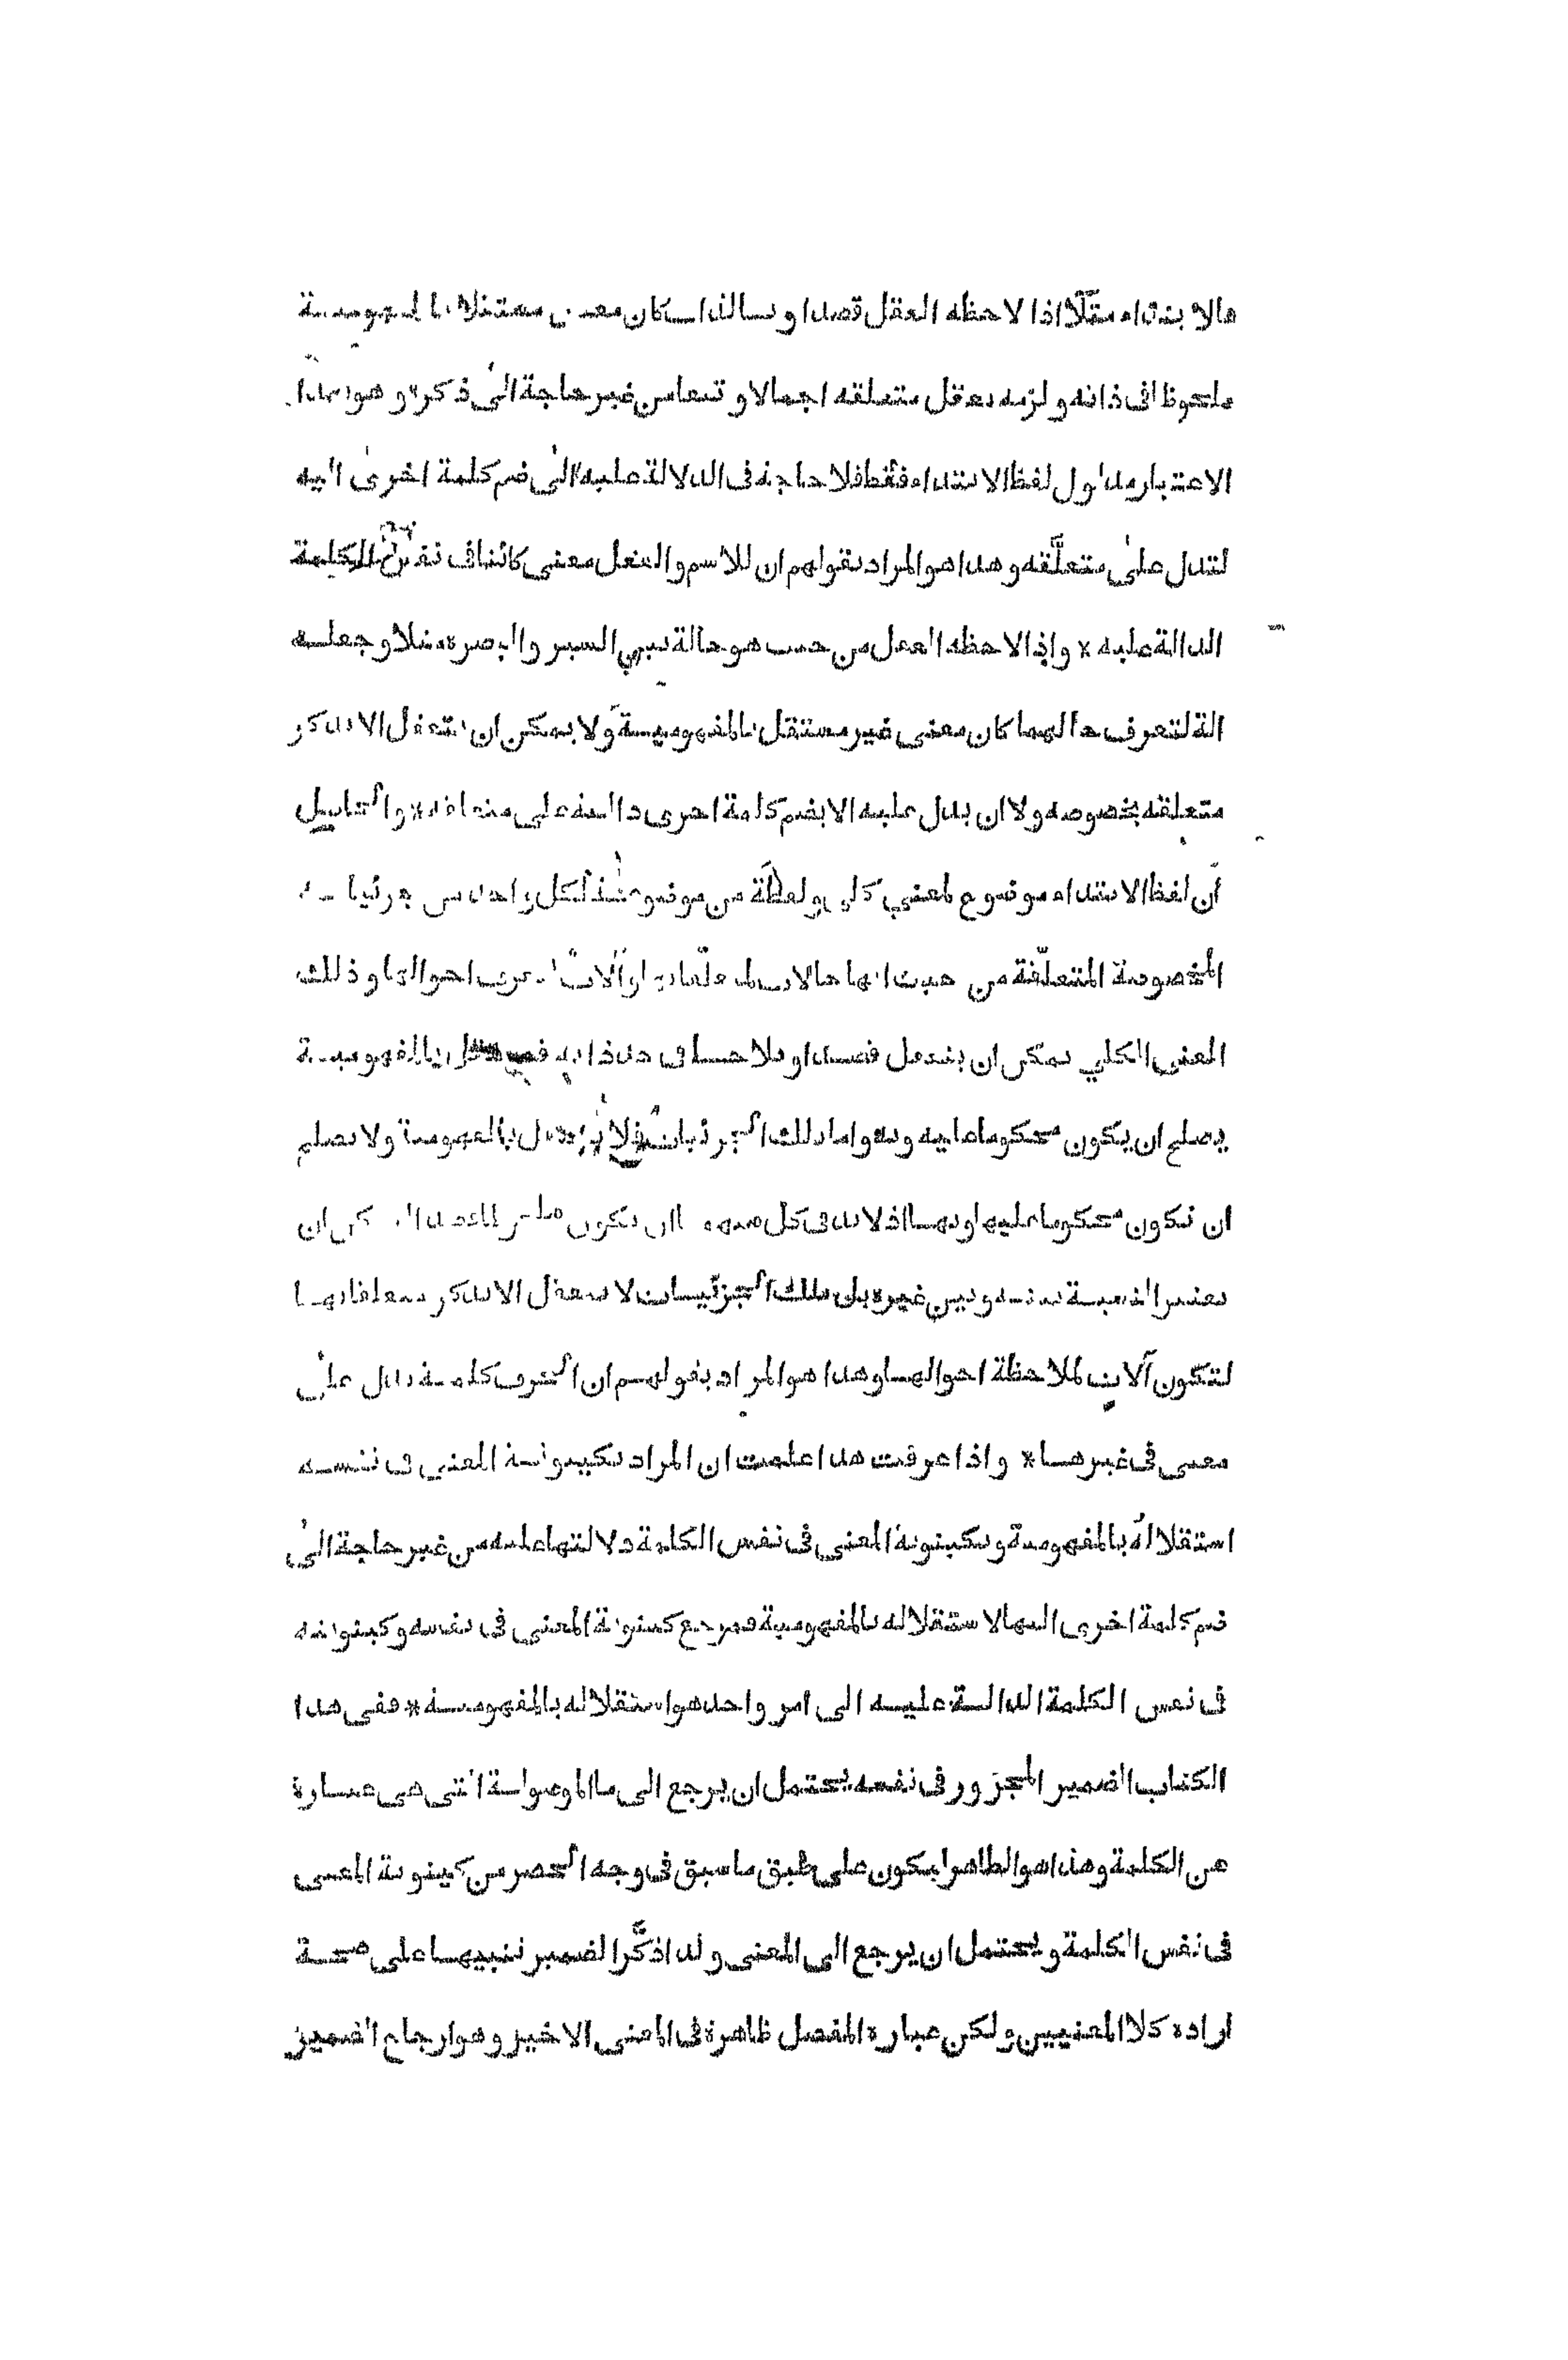 فالابتداء مثلًا اذا لاحظه العقل قصدا وبالذات كان معنى مستقلا بالمفهومية
ملحوظا فى ذاته ولزمه تعقل متعلقه اجمالا وتبعا من غير حاجة الى ذكره وهو بهذا
الاعتبار مدلول لفظ الابتداء فقط فلا حاجة فى الدلالة عليه الى ضم كلمة اخرى اليه
لتدل على متعلّقه وهذا هو المراد بقولهم ان للاسم والفعل معنى كائنا فى نفس الكلمة
الدالة عليه * واذا لاحظه العقل من حيث هو حالة بين السير والبصره مثلا وجعله
الة لتعرف حالهما كان معنى غير مستقل بالمفهومية ولا يمكن ان يتعقل الا بذكر
متعلقه بخصوصه ولا ان يدل عليه الا بضم كلمة اخرى دالة على متعلقه * والحاصل
أن لفظ الابتداء موضوع لمعنى كلى ولفظة من موضوعة لكل واحد من جزئيا ته
المخصوصة المتعلّقة من حيث انها حالات لمتعلقاتها وآلات لتعرف احوالها وذلك
المعنى الكلي يمكن ان يتعقل قصدا ويلاحظ فى حد ذاته فيستقل بالمفهومية
يصلح ان يكون محكوما عليه وبه واما تلك الجزئيات فلا تستقل بالمفهومية ولا تصلح
ان تكون محكوما عليها وبها اذ لابد فى كل منهما ان يكون ملحوظا قصدا ليمكن ان
تعتبر النسبة بينه وبين غيره بل تلك الجزئيات لا تتعقل الا بذكر متعلقاتها
لتكون آلات لملاحظة احوالها وهذا هو المراد بقولهم ان الحرف كلمة تدل على
معنى فى غيرها * واذا عرفت هذا علمت ان المراد بكينونة المعنى فى نفسه
استقلاله بالمفهومية وبكينونة المعنى فى نفس الكلمة دلالتها عليه من غير حاجة الى
ضم كلمة اخرى اليها لاستقلاله بالمفهومية فمرجع كينونة المعنى فى نفسه وكينونته
فى نفس الكلمة الدالة عليه الى امر واحد هو استقلاله بالمفهومية * ففى هذا
الكتاب الضمير المجرور فى نفسه يحتمل ان يرجع الى ما الموصولة التى هى عبارة
عن الكلمة وهذا هو الظاهر ليكون على طبق ما سبق فى وجه الحصر من كينونة المعنى
فى نفس الكلمة ويحتمل ان يرجع الى المعنى ولذا ذكّر الضمير تنبيها على صحة
اراده كلا المعنيين ولكن عبارة المفصل ظاهرة فى المعنى الاخير وهو ارجاع الضمير